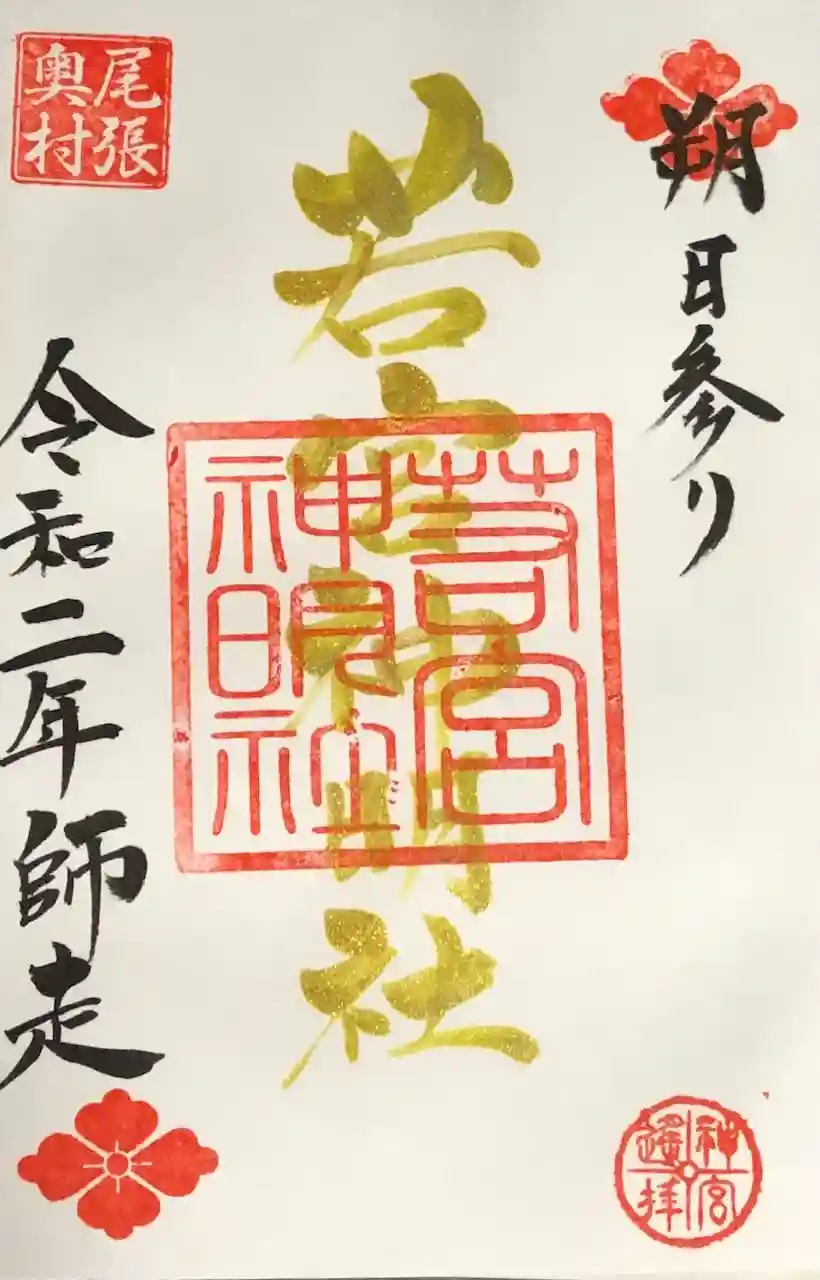 朔日参り
若宮神明社
若宮
神明社
尾張
奥村
令和二年師走
神宮
遙拝